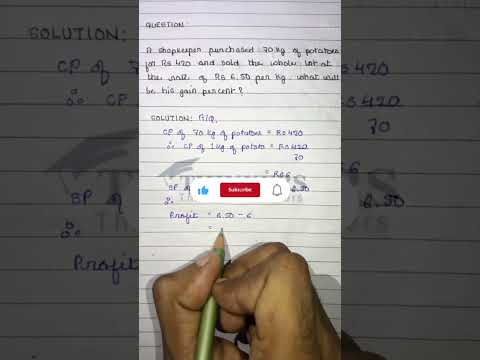 QUESTION:
A shopkeeper purchased 70 kg of potatoes
for Rs 420 and sold the whole lot at
the rate of Rs 6.50 per kg. what will
be his gain percent?
SOLUTION: A/Q,
CP of 70 kg of potatoes = Rs 420
∴ CP of 1 kg of potato = Rs 420
70
= Rs 6
SP of
Subscribe
6.50
Profit = 6.50 - 6
=
SOLUTION:
CP of 7
∴ CP
SP of
∴
Profit
Rs 420
420
70
6.50